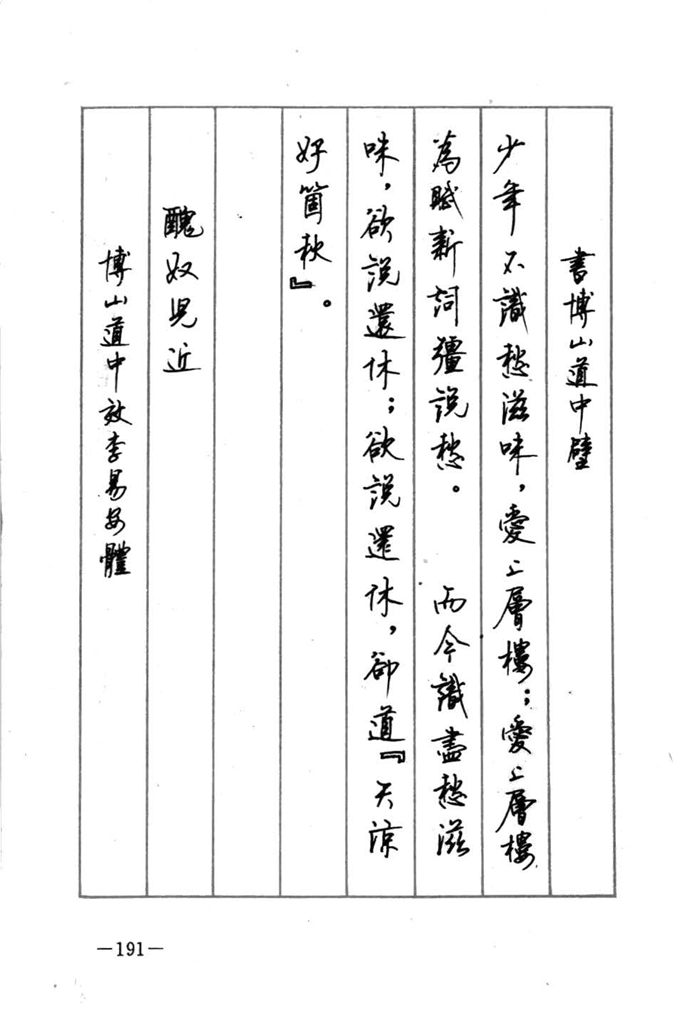 書博山道中壁
少年不識愁滋味，愛上層樓；愛上層樓
為賦新詞彊說愁。　而今識盡愁滋
味，欲說還休；欲說還休，卻道『天涼
好箇秋』。
醜奴兒近
博山道中效李易安體
—191—